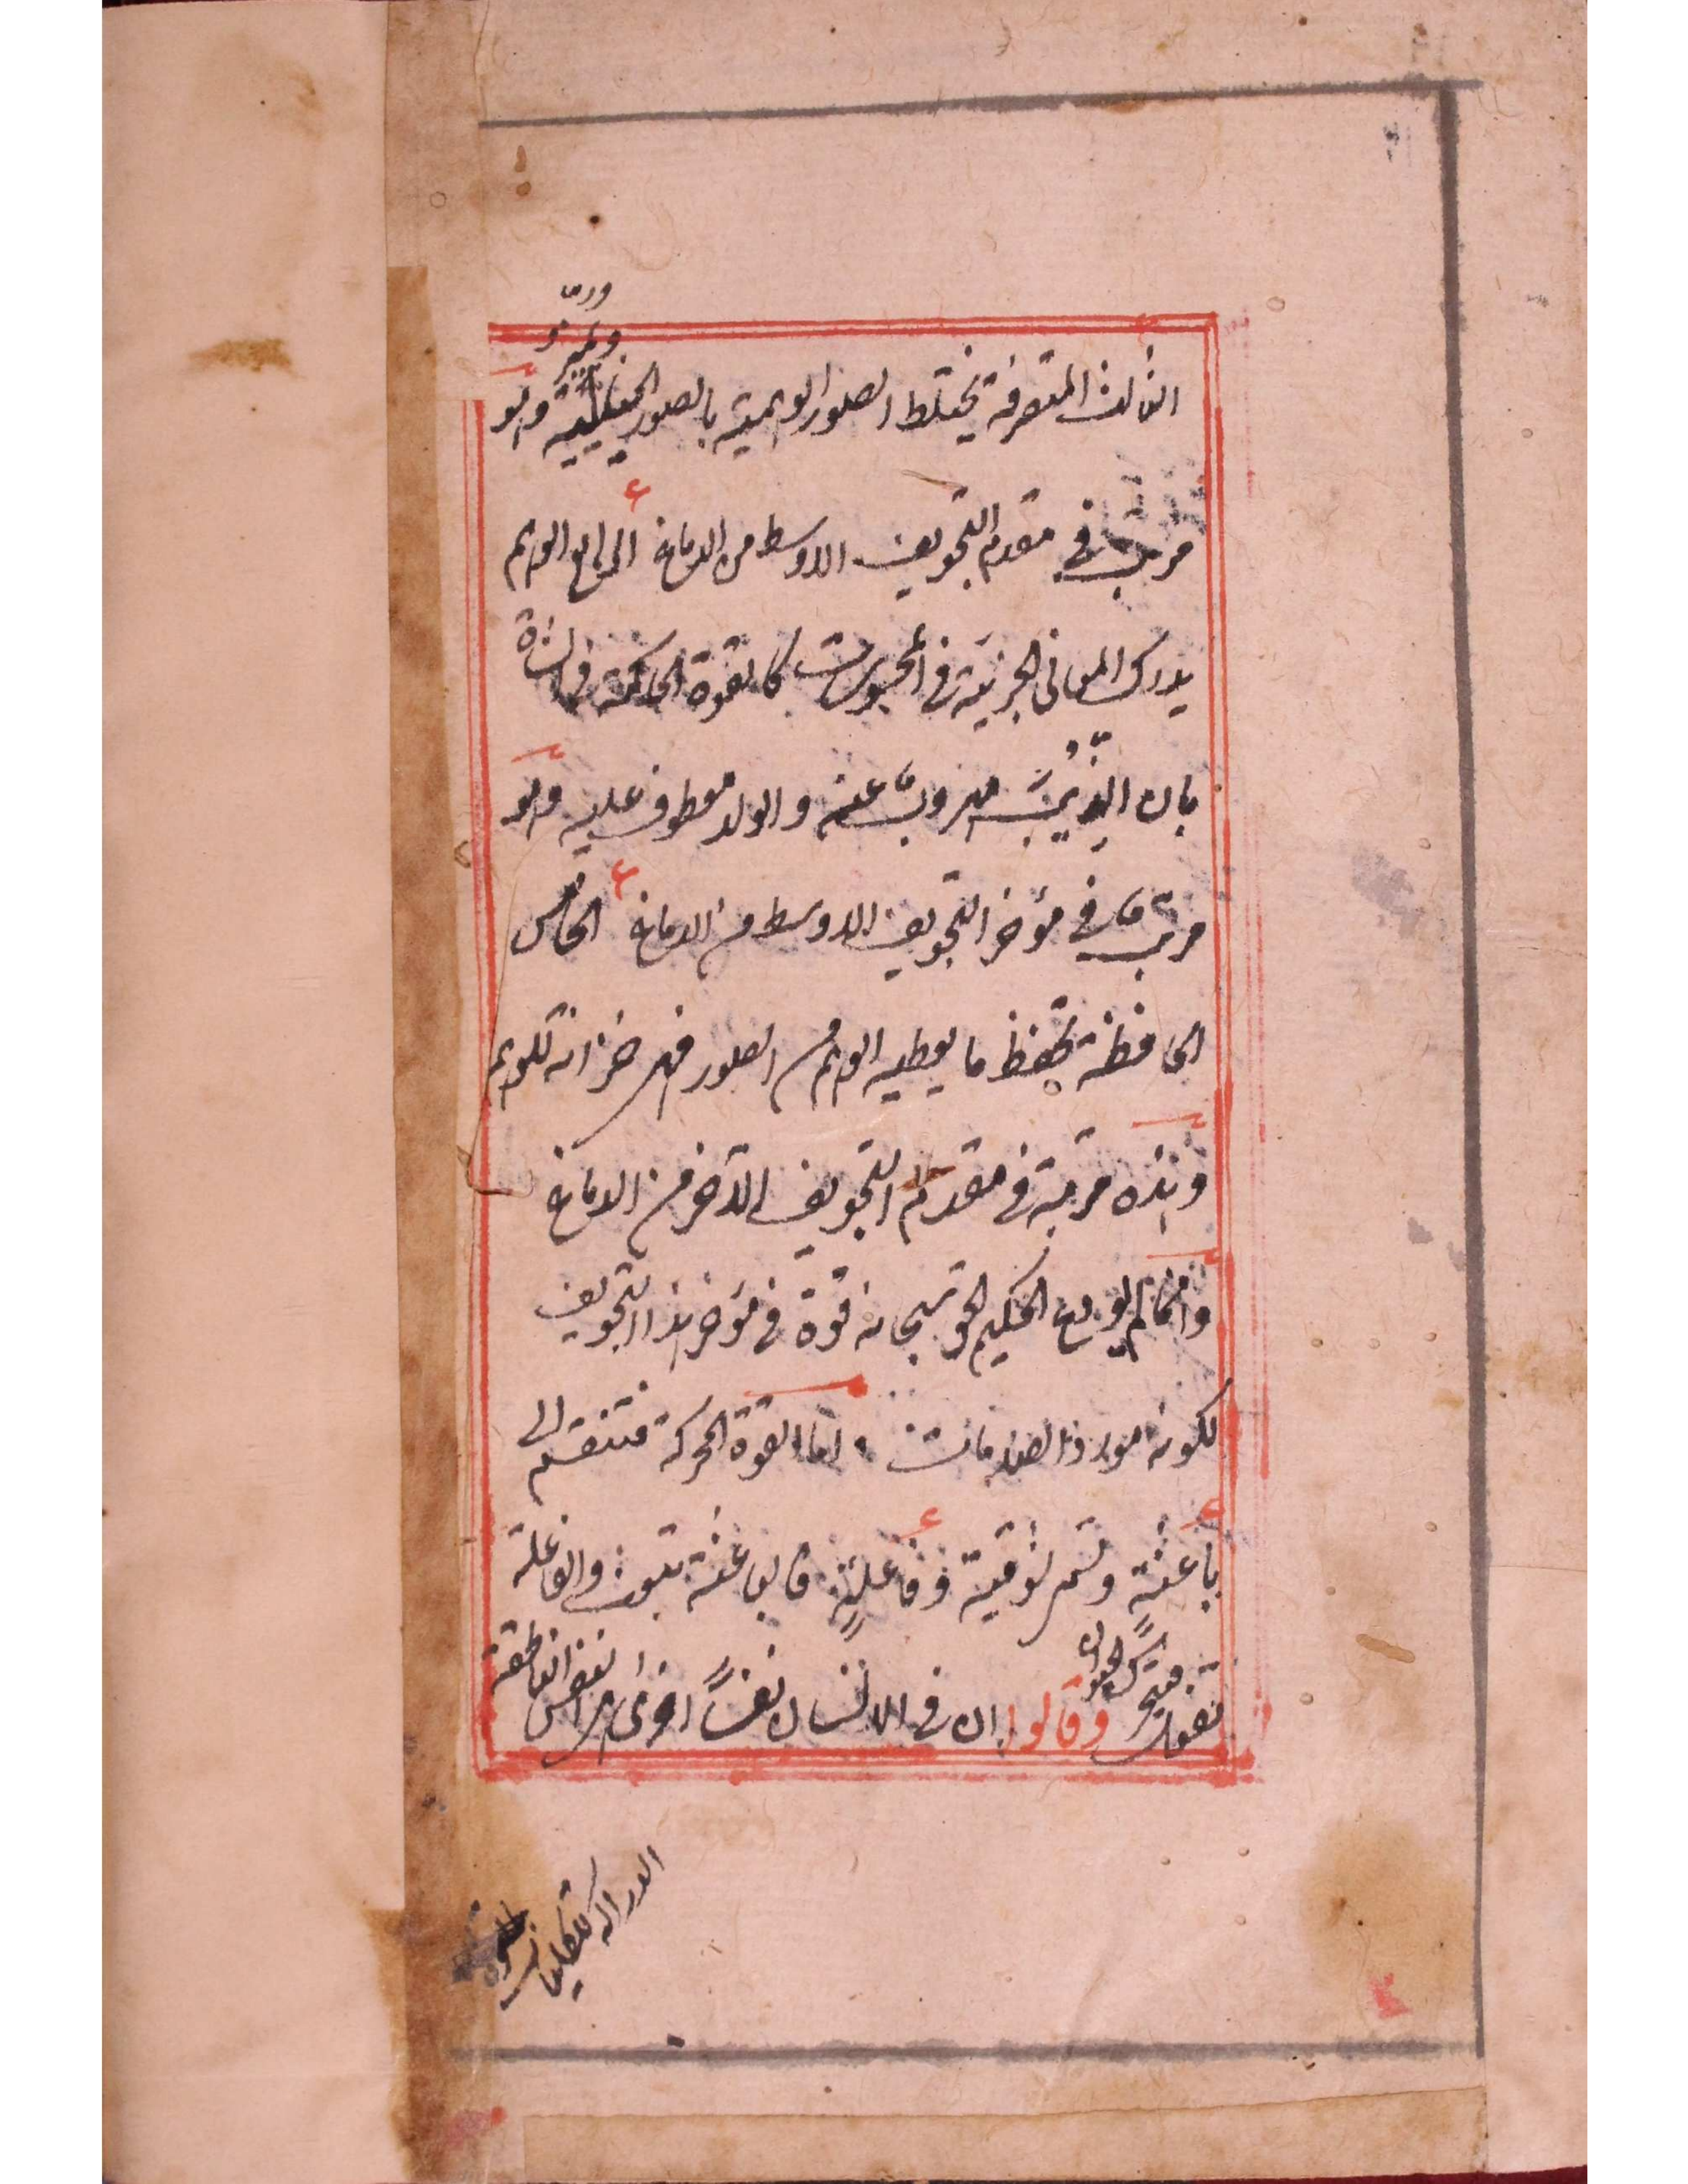 الثالث المتصرفة يختلط الصور الوهمية بالصور الخيالية وهو
مرتب في مقدم التجويف الاوسط من الدماغ الرابع الوهم
يدرك المعاني الجزئية في المحسوسات كالقوة الحاكمة في الشاة
بان الذئب مهروب عنه والولد معطوف عليه وهو
مرتب في مؤخر التجويف الاوسط من الدماغ الخامس
الحافظة تحفظ ما يعطيه الوهم من الصور فهي خزانة للوهم
وهذه مرتبة في مقدم التجويف الآخر من الدماغ
وانما لم يودع الحكيم الحق سبحانه قوة في مؤخر هذا التجويف
لكونه مورد المصادمات اما القوة المحركة فتنقسم الى
باعثة وتسمى شوقية وفاعلية فالباعثة تبعث والفاعلة
تفعل فيتحرك الحيوان وقالوا ان في الانسان نفسًا اخرى هي النفس الناطقة
الدراكة للكليات